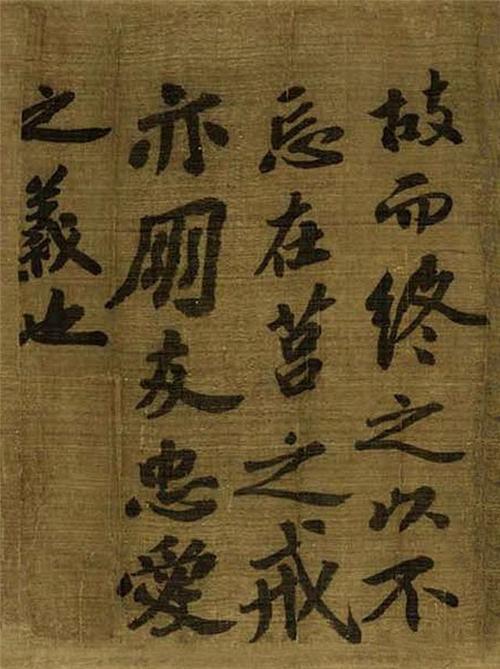 故而終之以不
忘在莒之戒
亦朋友忠愛
之義也